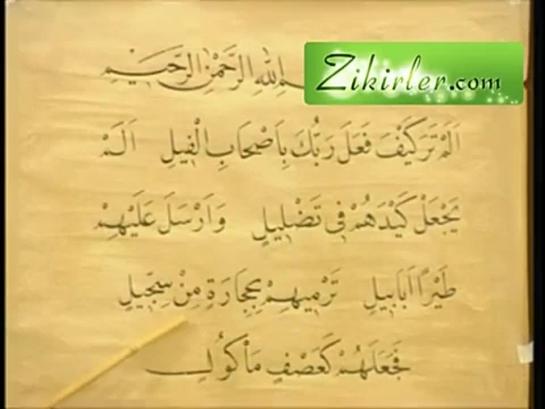 Zikirler.com
ـم اللهِ الرَّحْمٰنِ الرَّحٖيمِ
اَلَمْ تَرَ كَيْفَ فَعَلَ رَبُّكَ بِاَصْحَابِ الْفٖيلِ اَلَمْ
يَجْعَلْ كَيْدَهُمْ فٖى تَضْلٖيلٍ وَاَرْسَلَ عَلَيْهِمْ
طَيْرًا اَبَابٖيلَ تَرْمٖيهِمْ بِحِجَارَةٍ مِنْ سِجّٖيلٍ
فَجَعَلَهُمْ كَعَصْفٍ مَاْكُولٍ